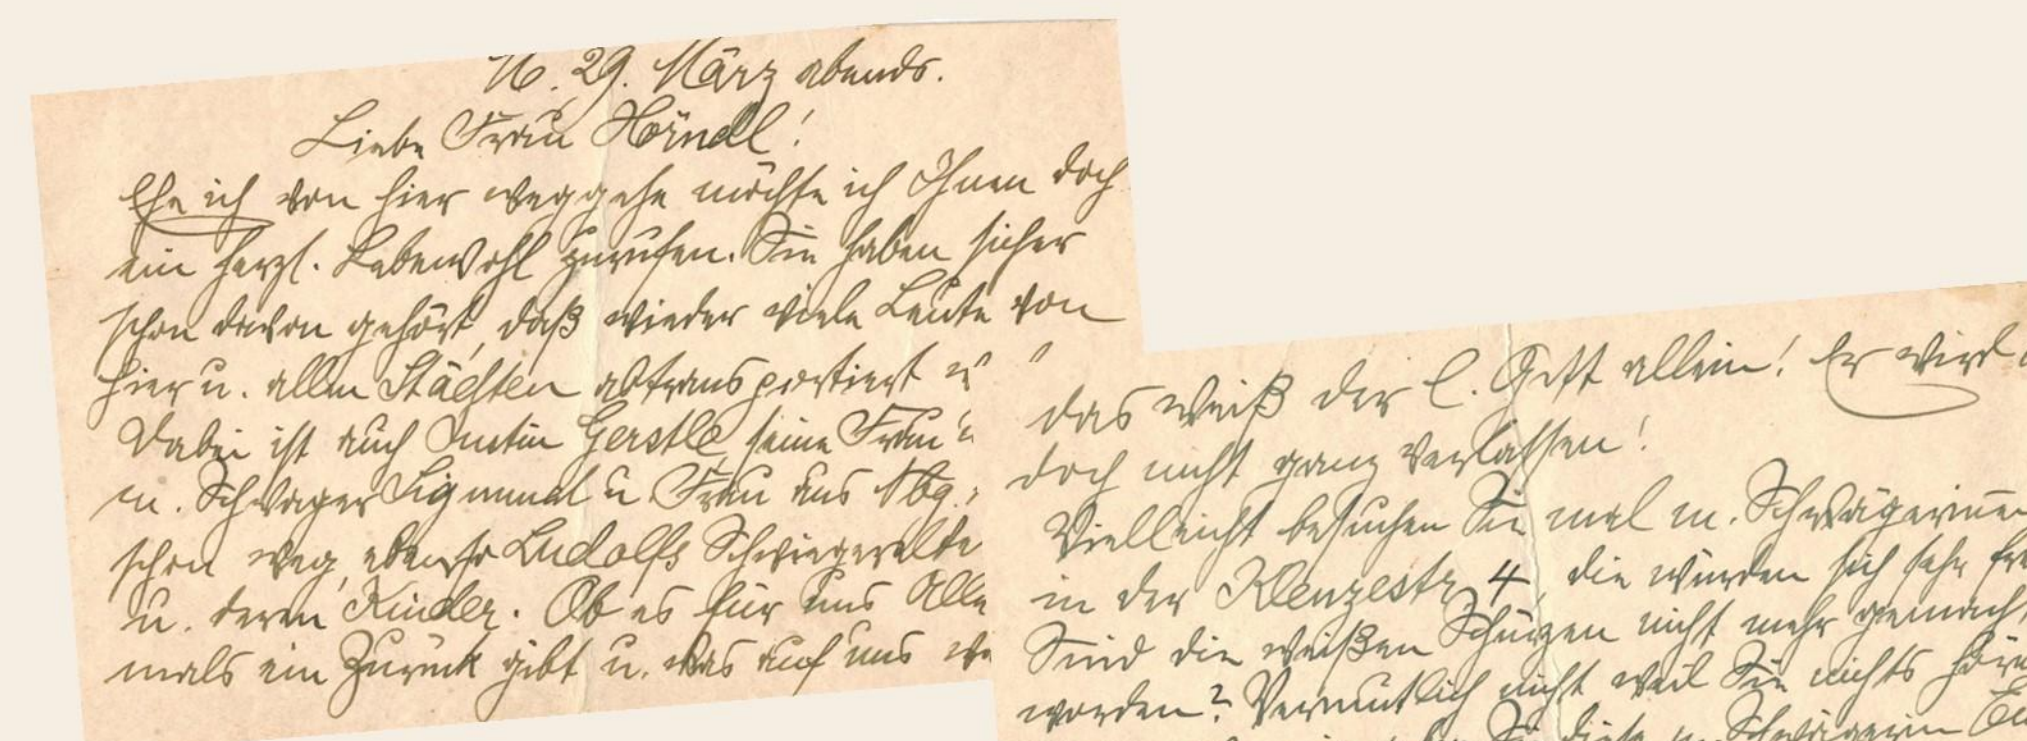 M. 29. März abends.
Liebe Frau Hörndl!
Ehe ich von hier weggehe möchte ich Ihnen doch
ein herzl. Lebewohl zurufen. Sie haben sicher
schon davon gehört, daß wieder viele Leute von
hier u. allen Städten abtransportiert
Dabei ist auch Gerstle, seine Frau
m. Schwager Sigmund u. Frau aus Abg.,
schon weg, ebenso Ludolfs Schwiegerelte
u. deren Kinder. Ob es für uns Alle
mals ein Zurück gibt u. was auf uns
das weiß der l. Gott allein! Er wird
doch nicht ganz verlassen!
Vielleicht besuchen Sie mal m. Schwägerinnen
in der Klenzestr. 4, die würden sich sehr fre
Sind die weißen Schürzen nicht mehr gemacht
worden? Vermutlich nicht weil Sie nichts höre
Sie diese m. Schwägerin